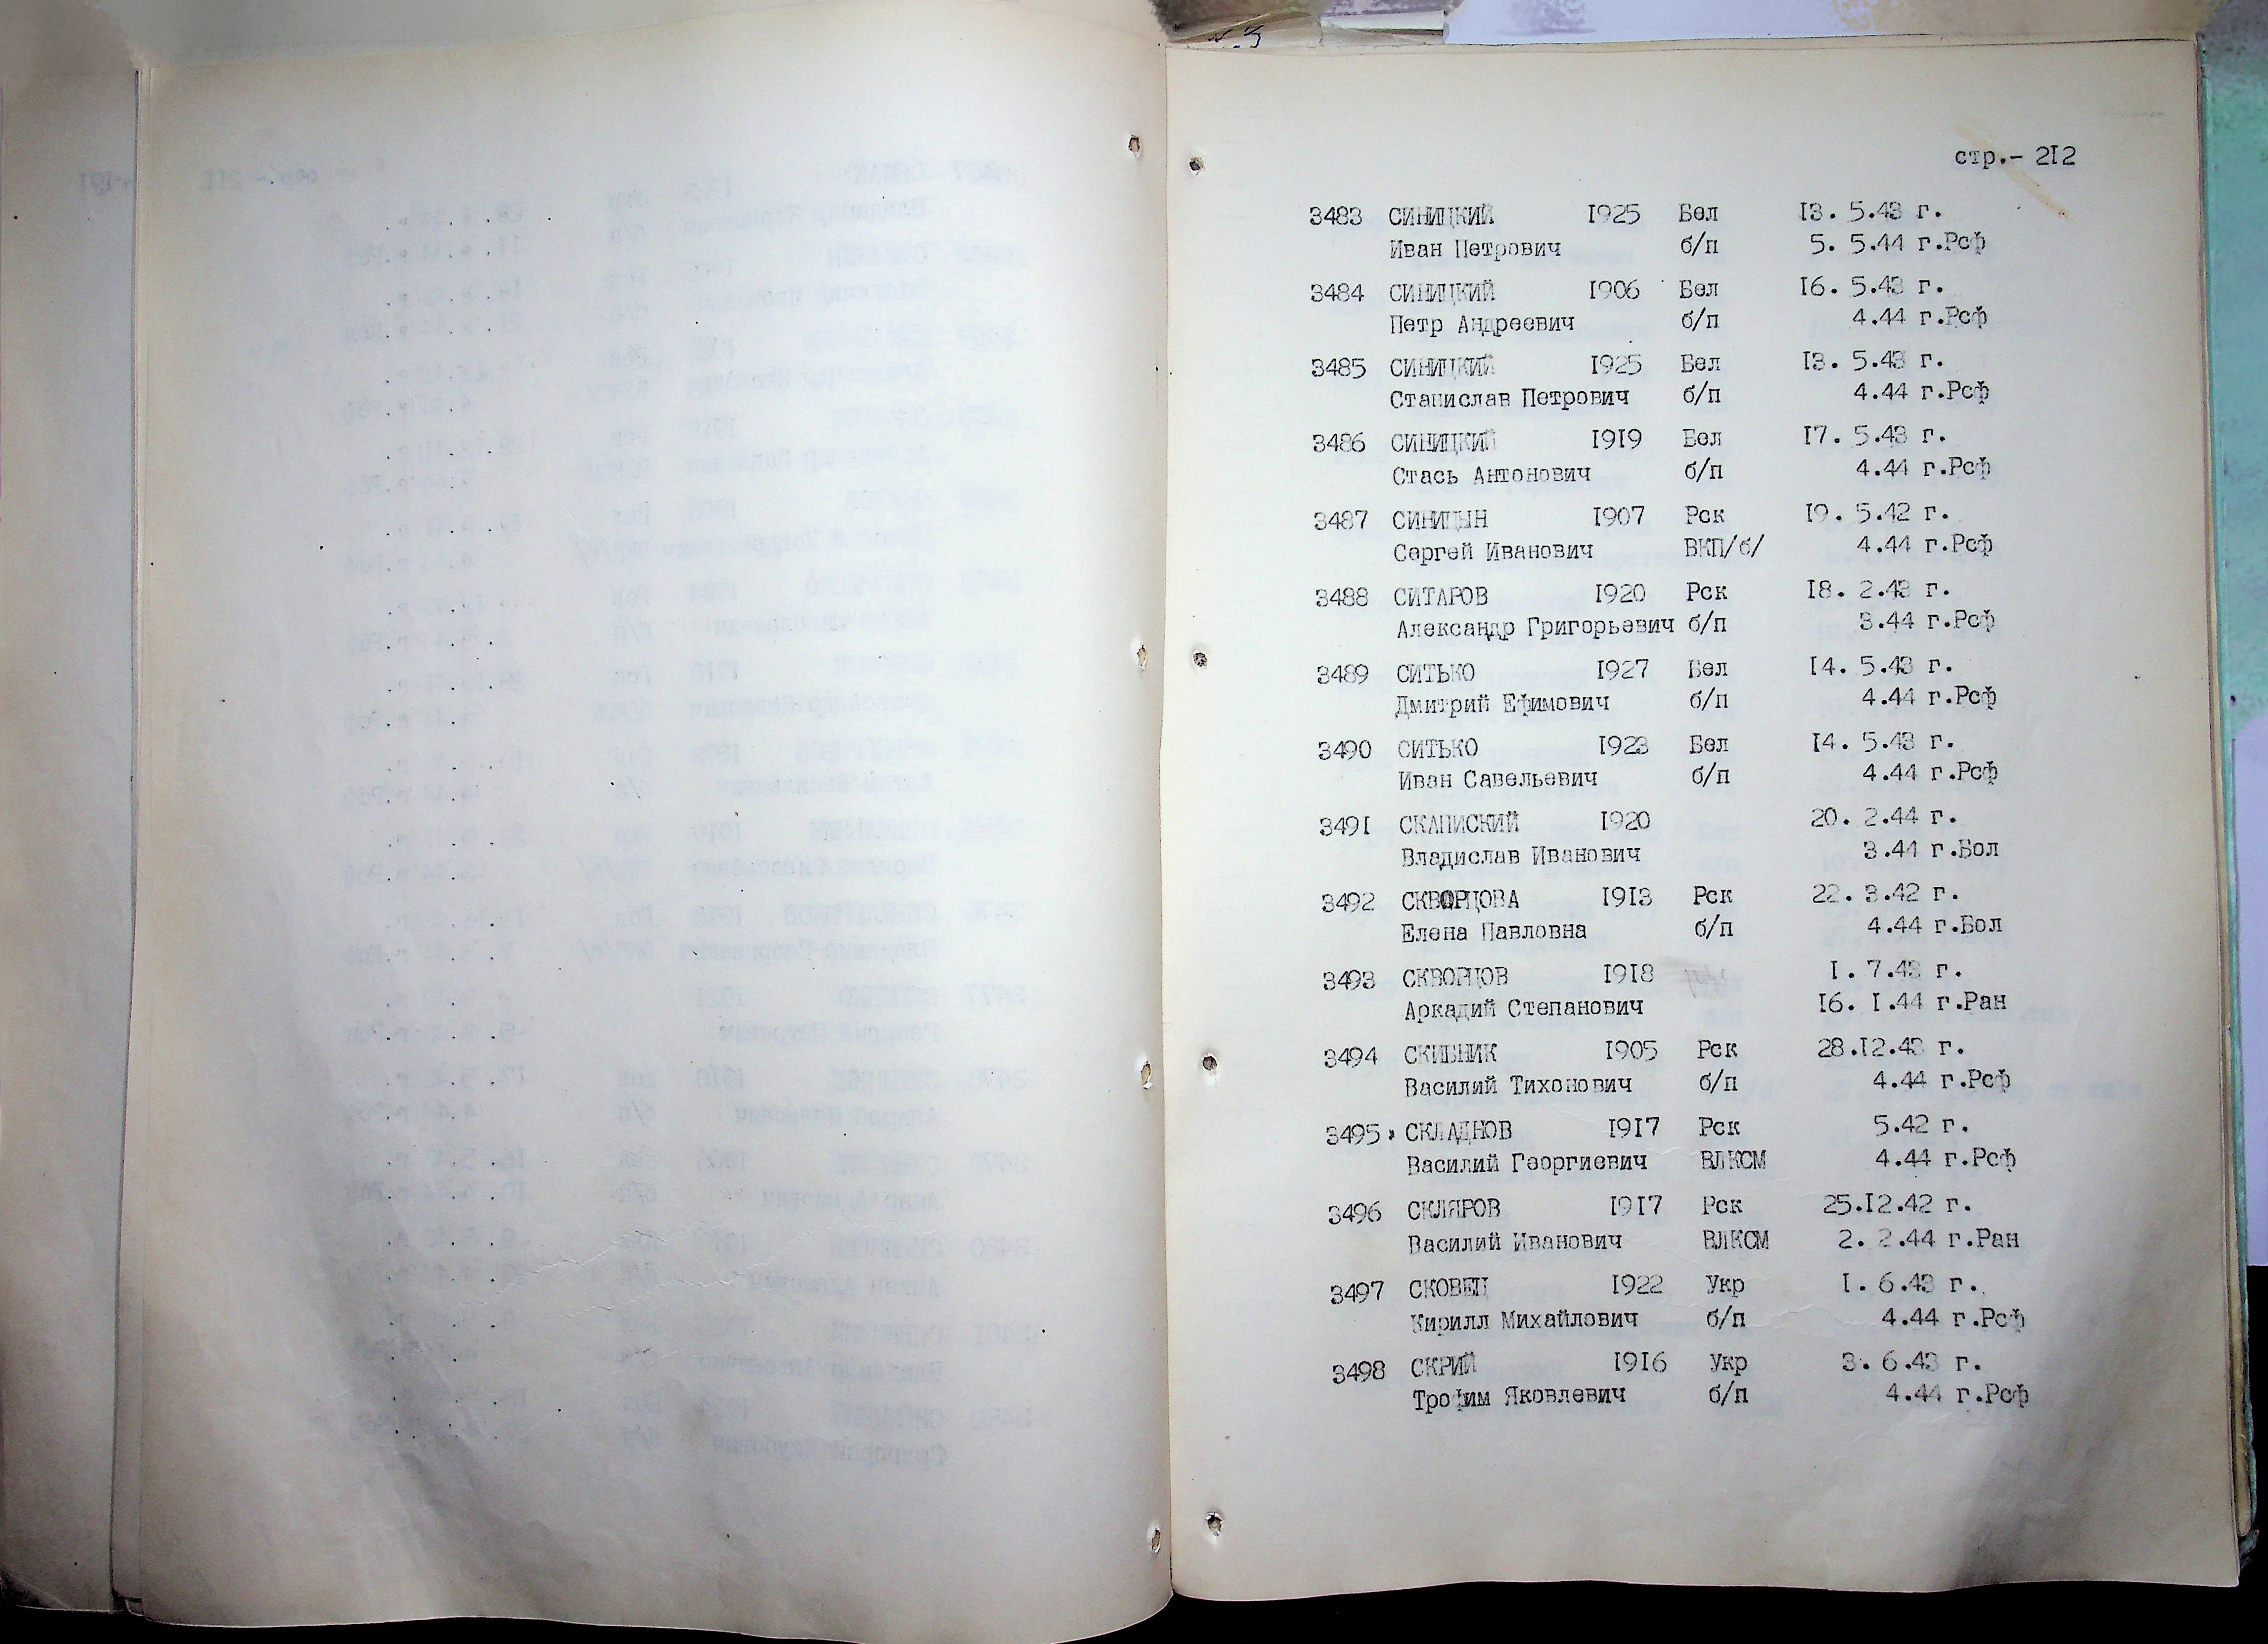 стр.- 212
3483 СИНИЦКИЙ 1925 Бел 13. 5.43 г.
Иван Петрович б/п 5. 5.44 г.Рсф
3484 СИНИЦКИЙ 1906 Бел 16. 5.43 г.
Петр Андреевич б/п 4.44 г.Рсф
3485 СИНИЦКИЙ 1925 Бел 13. 5.43 г.
Станислав Петрович б/п 4.44 г.Рсф
3486 СИНИЦКИЙ 1919 Бел 17. 5.43 г.
Стась Антонович б/п 4.44 г.Рсф
3487 СИНИЦЫН 1907 Рск 19. 5.42 г.
Сергей Иванович ВКП/б/ 4.44 г.Рсф
3488 СИТАРОВ 1920 Рск 18. 2.43 г.
Александр Григорьевич б/п 3.44 г.Рсф
3489 СИТЬКО 1927 Бел 14. 5.43 г.
Дмитрий Ефимович б/п 4.44 г.Рсф
3490 СИТЬКО 1923 Бел 14. 5.43 г.
Иван Савельевич б/п 4.44 г.Рсф
3491 СКАПИСКИЙ 1920 20. 2.44 г.
Владислав Иванович 3.44 г.Бол
3492 СКВОРЦОВА 1913 Рск 22. 3.42 г.
Елена Павловна б/п 4.44 г.Бол
3493 СКВОРЦОВ 1918 1. 7.43 г.
Аркадий Степанович 16. 1.44 г.Ран
3494 СКИБНИК 1905 Рск 28.12.43 г.
Василий Тихонович б/п 4.44 г.Рсф
3495 СКЛАДНОВ 1917 Рск 5.42 г.
Василий Георгиевич ВЛКСМ 4.44 г.Рсф
3496 СКЛЯРОВ 1917 Рск 25.12.42 г.
Василий Иванович ВЛКСМ 2. 2.44 г.Ран
3497 СКОВЕЦ 1922 Укр 1. 6.43 г.
Кирилл Михайлович б/п 4.44 г.Рсф
3498 СКРИЙ 1916 Укр 3. 6.43 г.
Трофим Яковлевич б/п 4.44 г.Рсф